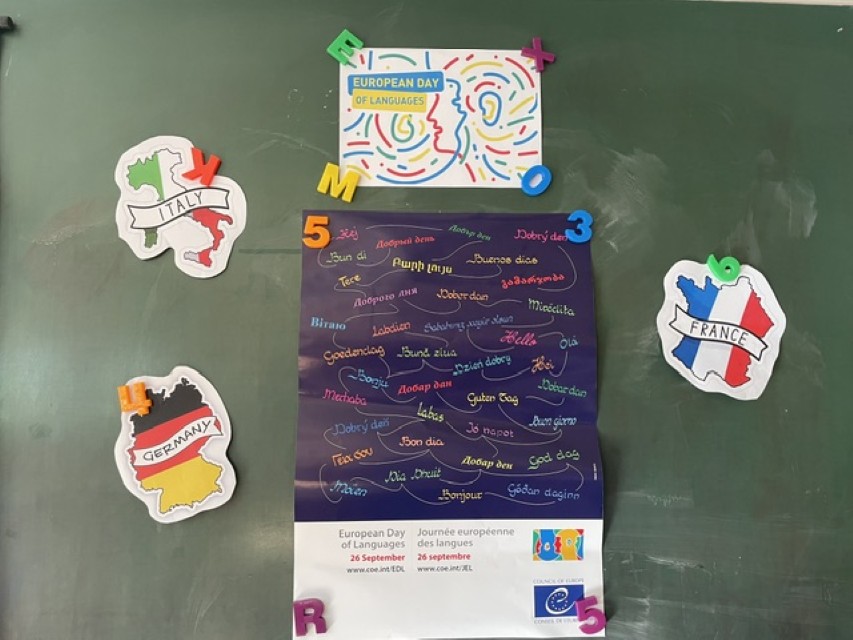 E
X
EUROPEAN DAY
OF LANGUAGES
M
O
K
ITALY
5
3
Hej
Добрый день
Добър ден
Dobrý den
Bun di
Tere
Բարի լույս
Buenos días
გამარჯობა
Доброго дня
Dobar dan
Mirëdita
Вітаю
Labdien
Hello
Olá
Goedendag
Bună ziua
Dzień dobry
Hei
Bonju
Добар дан
Merhaba
Guten Tag
Dobar dan
labas
Dobrý deň
Jó napot
Buon giorno
Bon dia
Γεια σου
Добар ден
God dag
Dia Dhuit
Moien
Bonjour
Góðan daginn
6
FRANCE
GERMANY
European Day
of Languages
26 September
www.coe.int/EDL
Journée européenne
des langues
26 septembre
www.coe.int/JEL
COUNCIL OF EUROPE
CONSEIL DE L'EUROPE
R
5